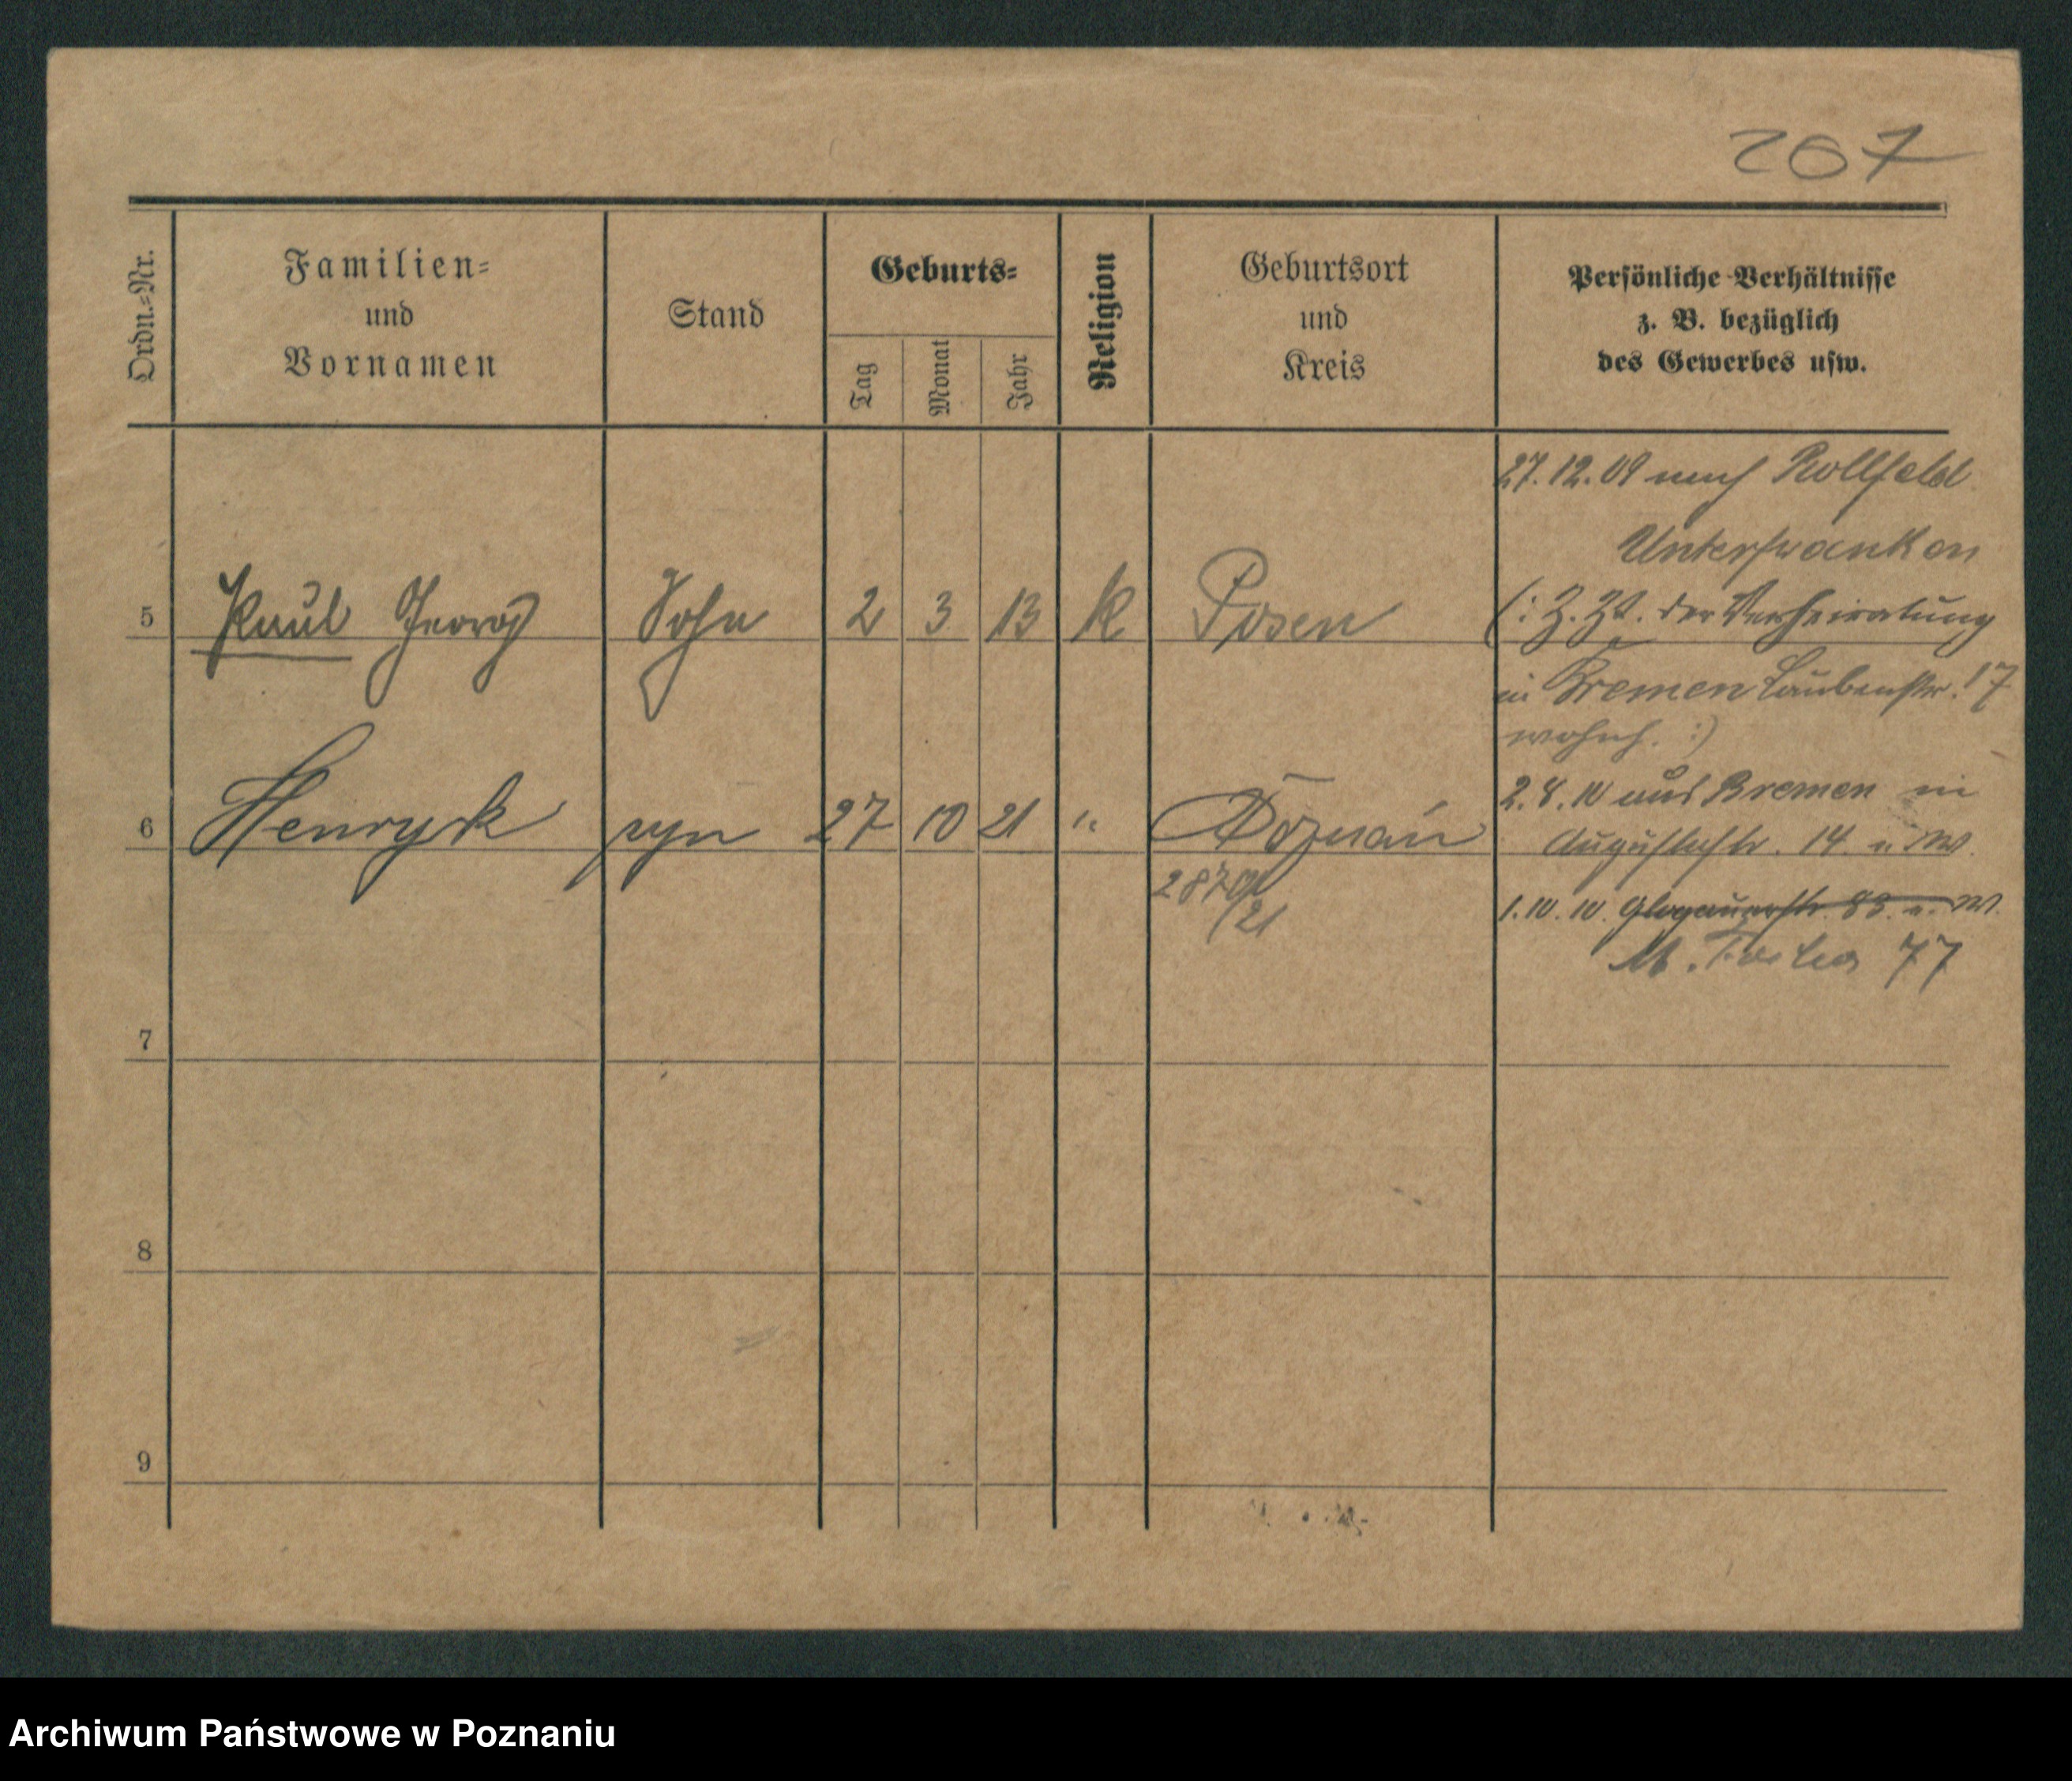 207
Ordn.-Nr.
Familien-
und
Vornamen
Stand
Geburts-
Tag
Monat
Jahr
Religion
Geburtsort
und
Kreis
Persönliche Verhältnisse
z. B. bezüglich
des Gewerbes usw.
27.12.09 nach Rollfeld
Unterfranken
5 Paul Georg Sohn 2 3 13 k Posen
(: Z. Zt. der Verheiratung
in Bremen Laubenstr. 17
wohnh. :)
2.8.10 aus Bremen in
6 Henryk syn 27 10 21 " Poznań
Augustastr. 14 u. W.
2870/21
1.10.10. Glogauerstr. 83. u. W.
M. Focha 77
7
8
9
Archiwum Państwowe w Poznaniu